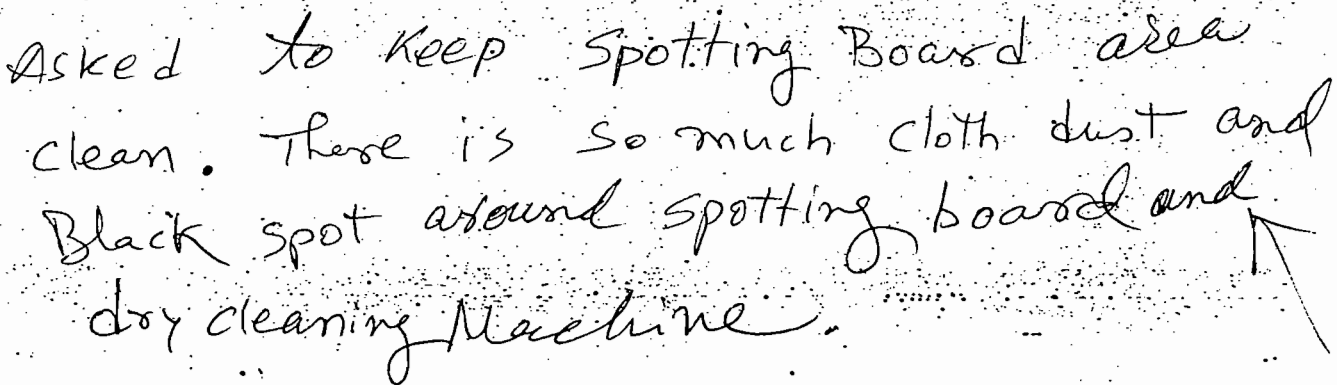 Asked to Keep Spotting Board area
clean. There is so much cloth dust and
Black spot around spotting board and
dry cleaning Machine.